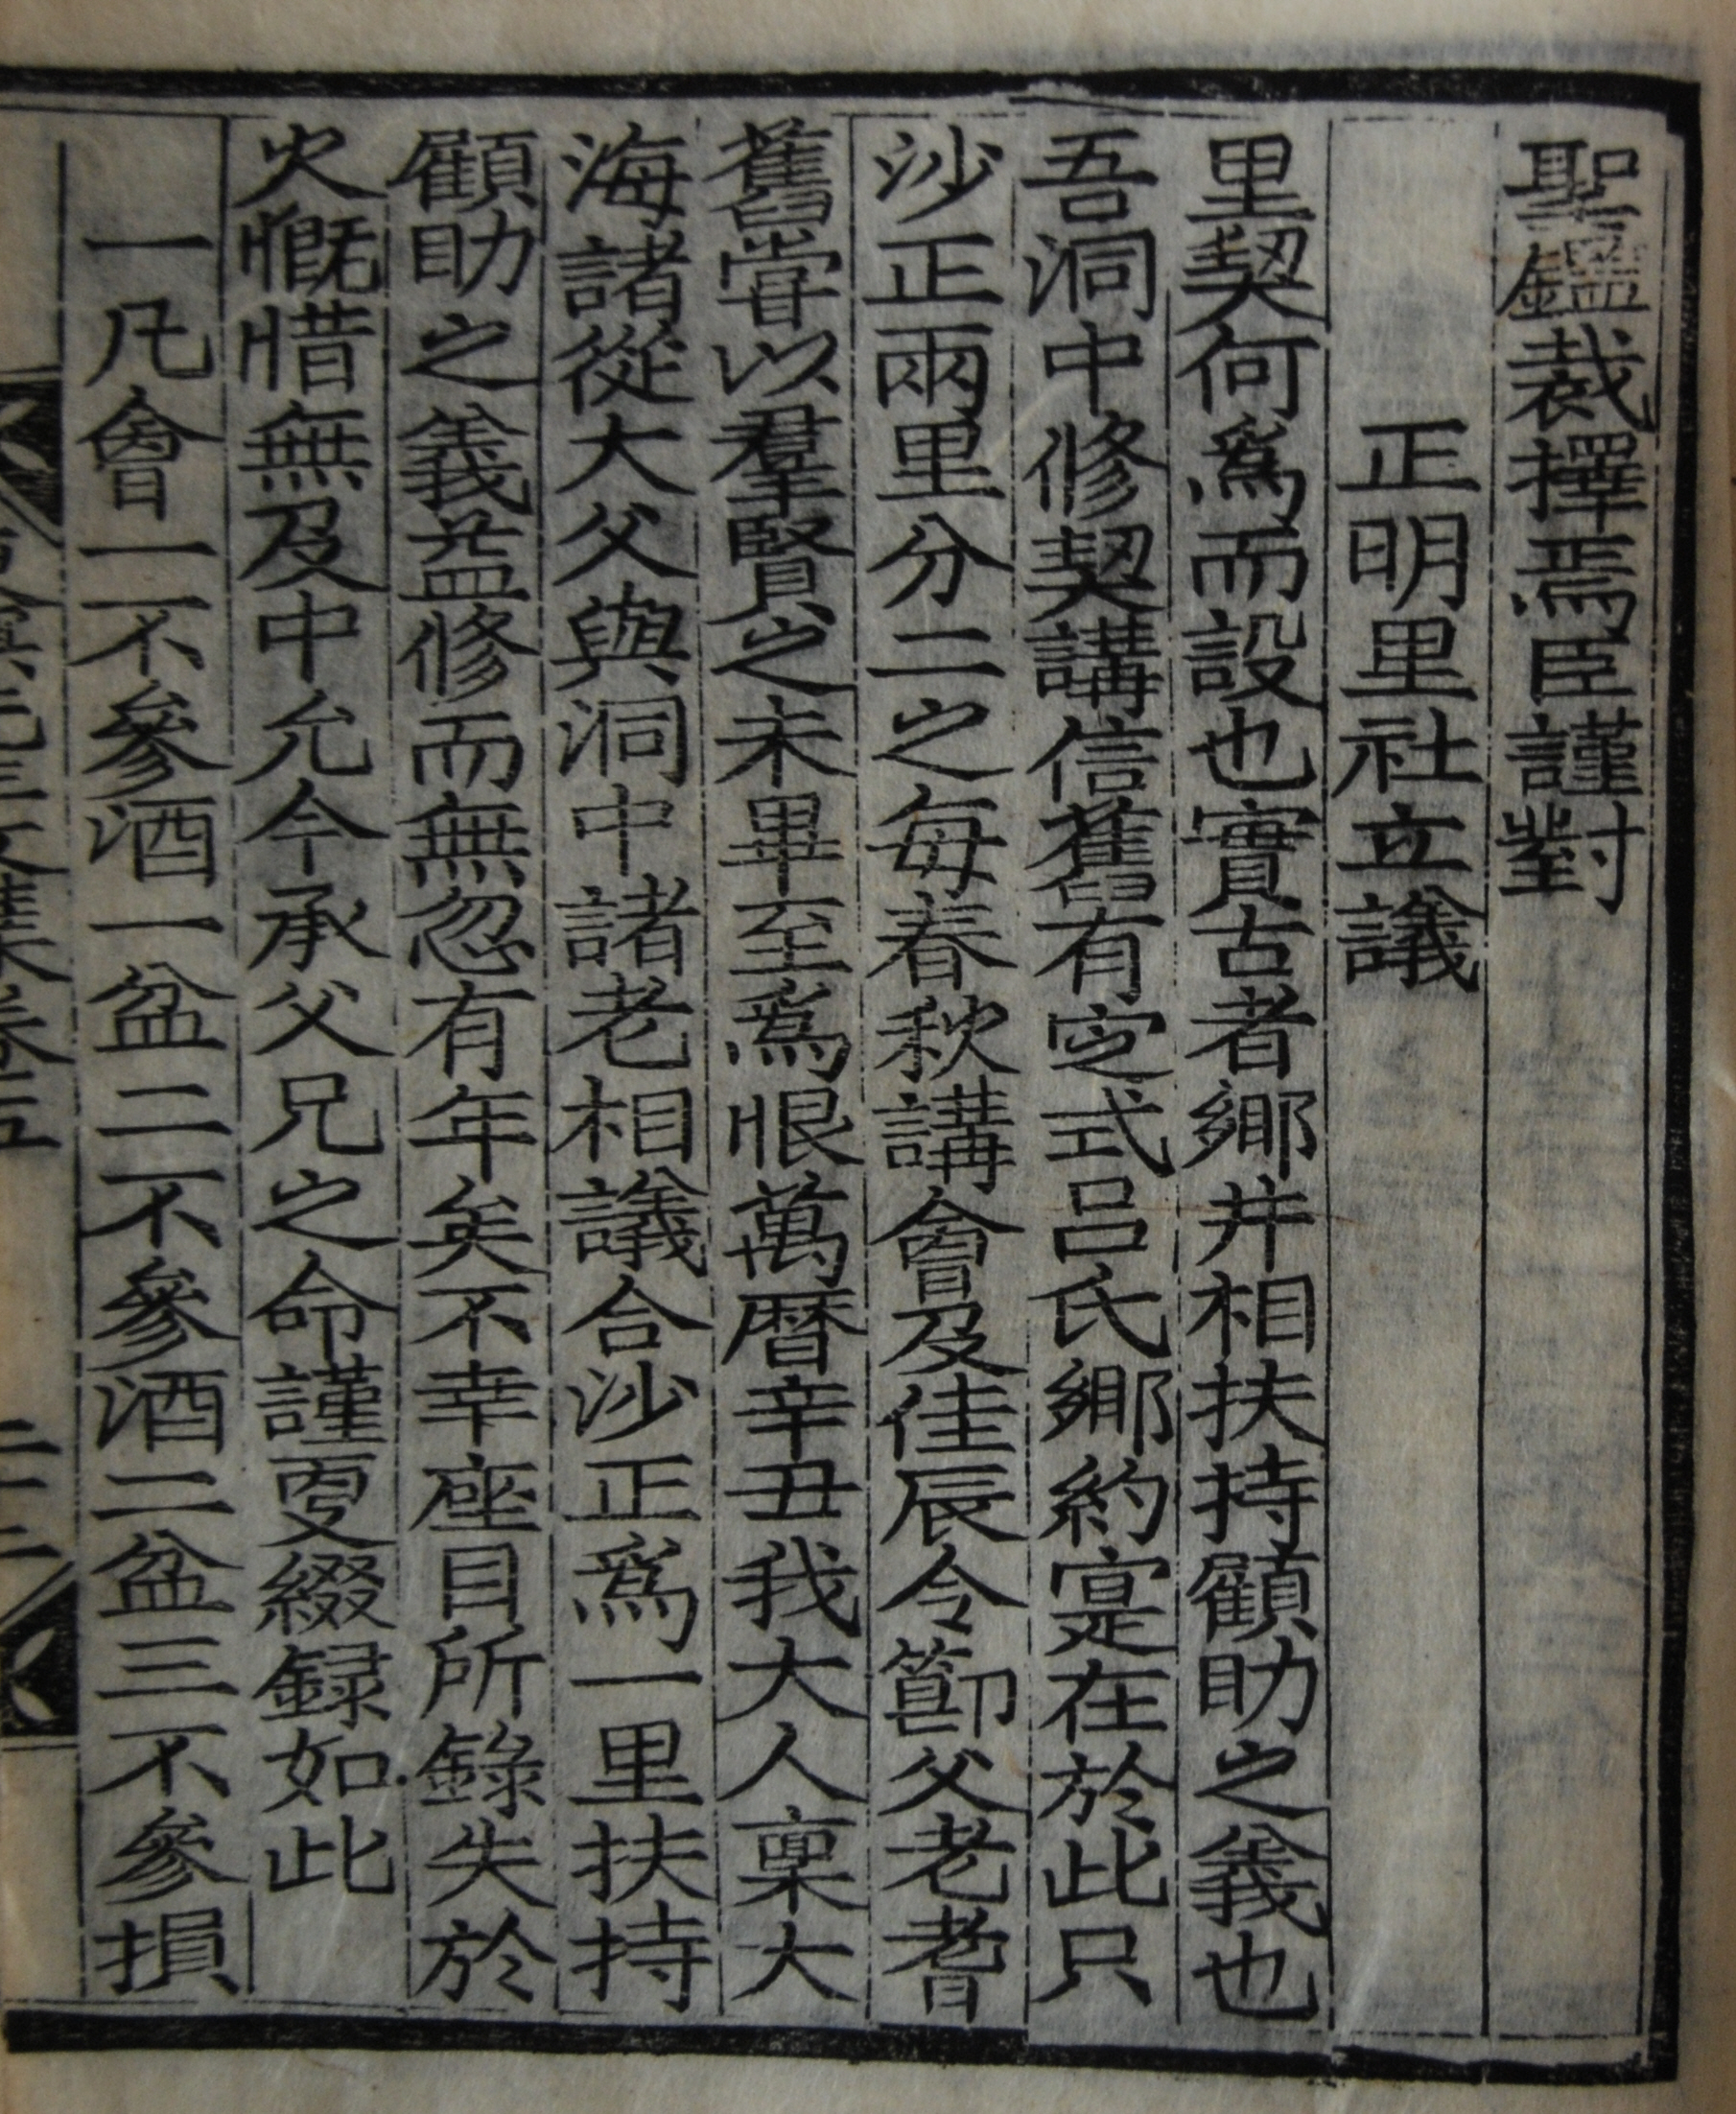 聖鑑裁擇焉臣謹對
正明里社立議
里契何爲而設也實古者鄉井相扶持顧助之義也
吾洞中修契講信舊有定式呂氏鄉約寔在於此只
沙正兩里分二之每春秋講會及佳辰令節父老耆
舊嘗以羣賢之未畢至爲恨萬曆辛丑我大人稟大
海諸從大父與洞中諸老相議合沙正爲一里扶持
顧助之義益修而無忽有年矣不幸座目所錄失於
火慨惜無及中允今承父兄之命謹更綴録如此
一凡會一不參酒一盆二不參酒二盆三不參損
文集卷五